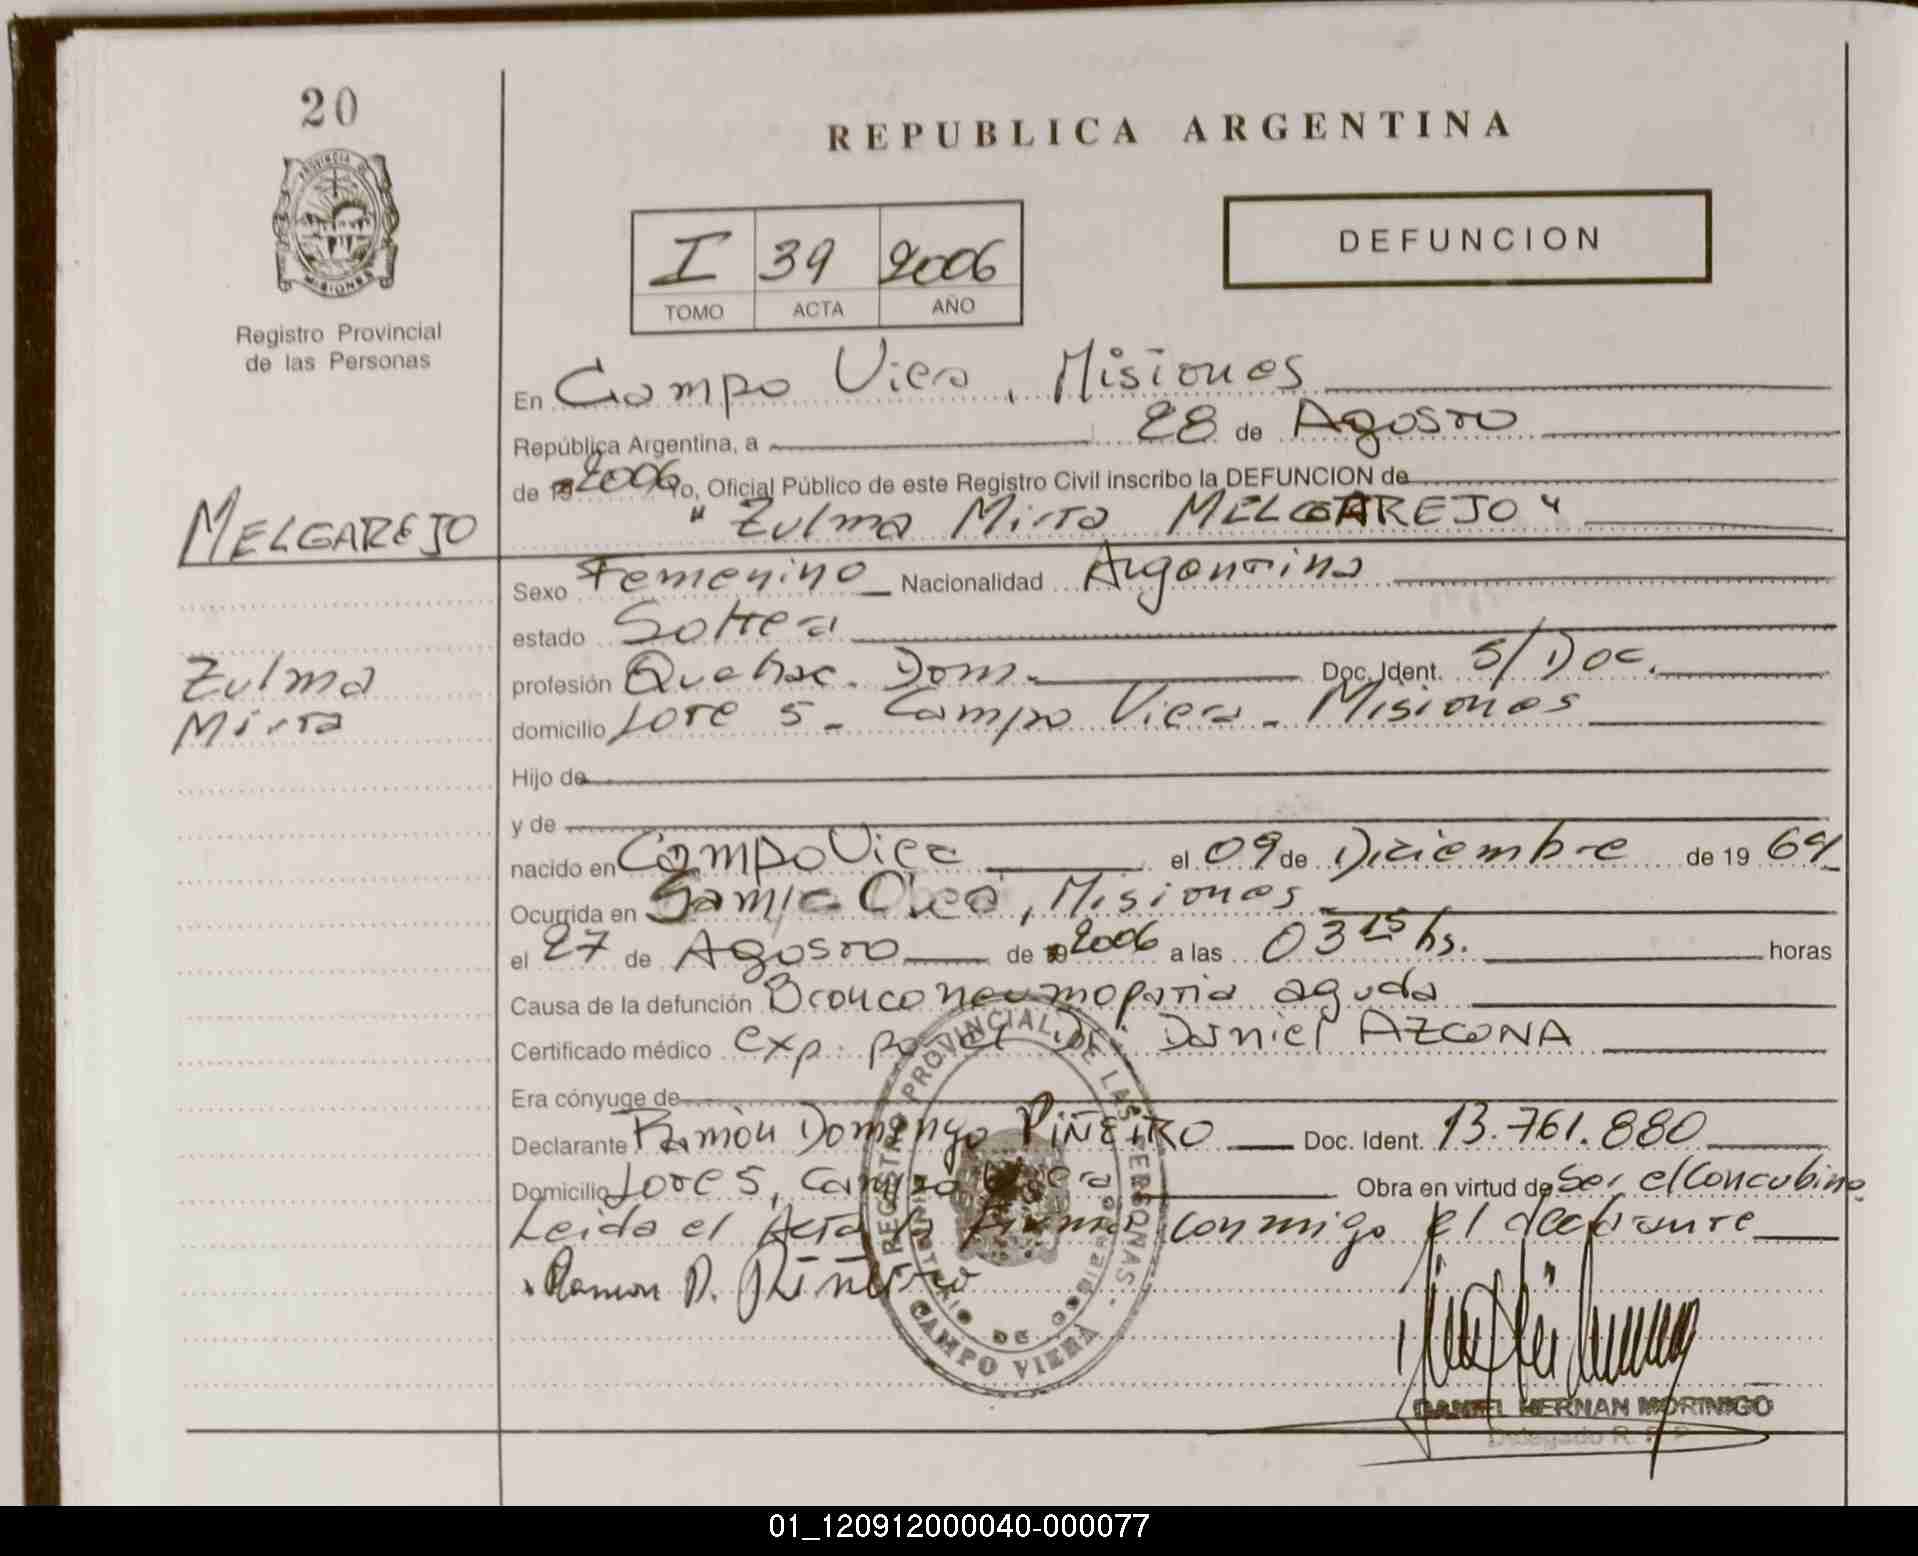 20
PROVINCIA DE
MISIONES
Registro Provincial
de las Personas
MELGAREJO
Zulma
Mirta
REPUBLICA ARGENTINA
I 39 2006
TOMO ACTA AÑO
DEFUNCION
En Campo Viera, Misiones
República Argentina, a 28 de Agosto
de 19 2006 Yo, Oficial Público de este Registro Civil inscribo la DEFUNCION de
"Zulma Mirta MELGAREJO"
Sexo Femenino Nacionalidad Argentina
estado Soltera
profesión Quehac. Dom. Doc. Ident. S/Doc.
domicilio Lote 5 - Campo Viera - Misiones
Hijo de
y de
nacido en Campo Viera el 09 de Diciembre de 19
Ocurrida en Samic Oberá, Misiones
el 27 de Agosto de 19 2006 a las 03 15 hs. horas
Causa de la defunción Bronconeumopatia aguda
Certificado médico exp. por el Dr. Daniel AZCONA
Era cónyuge de
Declarante Ramón Domingo PIÑEIRO Doc. Ident. 13.761.880
Domicilio Lote 5, Campo Viera Obra en virtud de Ser el Concubino.
Leida el Acta la firma conmigo el declarante
Ramon D. Piñeiro
REGISTRO PROVINCIAL DE LAS PERSONAS
MINISTERIO DE GOBIERNO
CAMPO VIERA
DANIEL HERNAN MORINIGO
Delegado R. P. P.
01_120912000040-000077